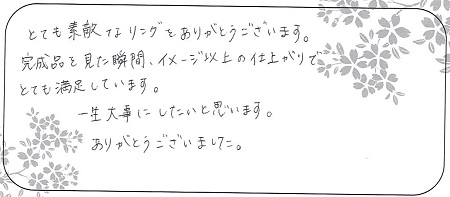 とても素敵なリングをありがとうございます。
完成品を見た瞬間、イメージ以上の仕上がりで
とても満足しています。
一生大事にしたいと思います。
ありがとうございました。